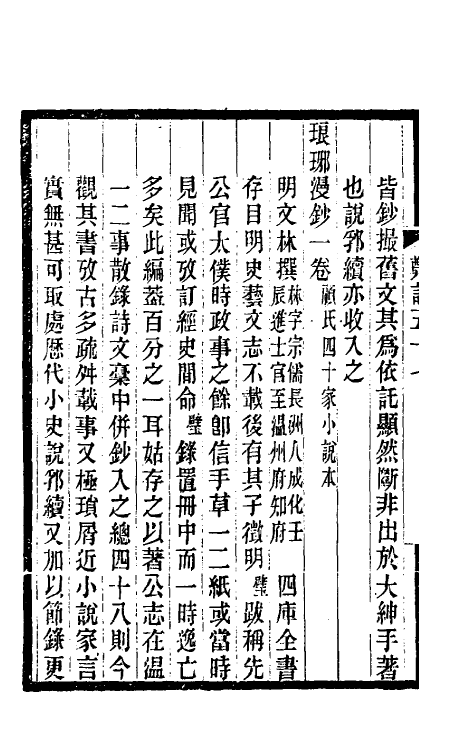 皆鈔撮舊文其為依託顯然斷非出於大紳手著
也說郛續亦收入之
琅琊漫鈔一卷顧氏四十家小說本
明文林撰林字宗儒長洲人成化壬辰進士官至溫州府知府四庫全書
存目明史藝文志不載後有其子徵明壁跋稱先
公官太僕時政事之餘卽信手草一二紙或當時
見聞或攷訂經史間命壁錄置冊中而一時逸亡
多矣此編葢百分之一耳姑存之以著公志在温
一二事散錄詩文稾中併鈔入之總四十八則今
觀其書攷古多疏舛載事又極瑣屑近小說家言
實無甚可取處歷代小史說郛續又加以節錄更